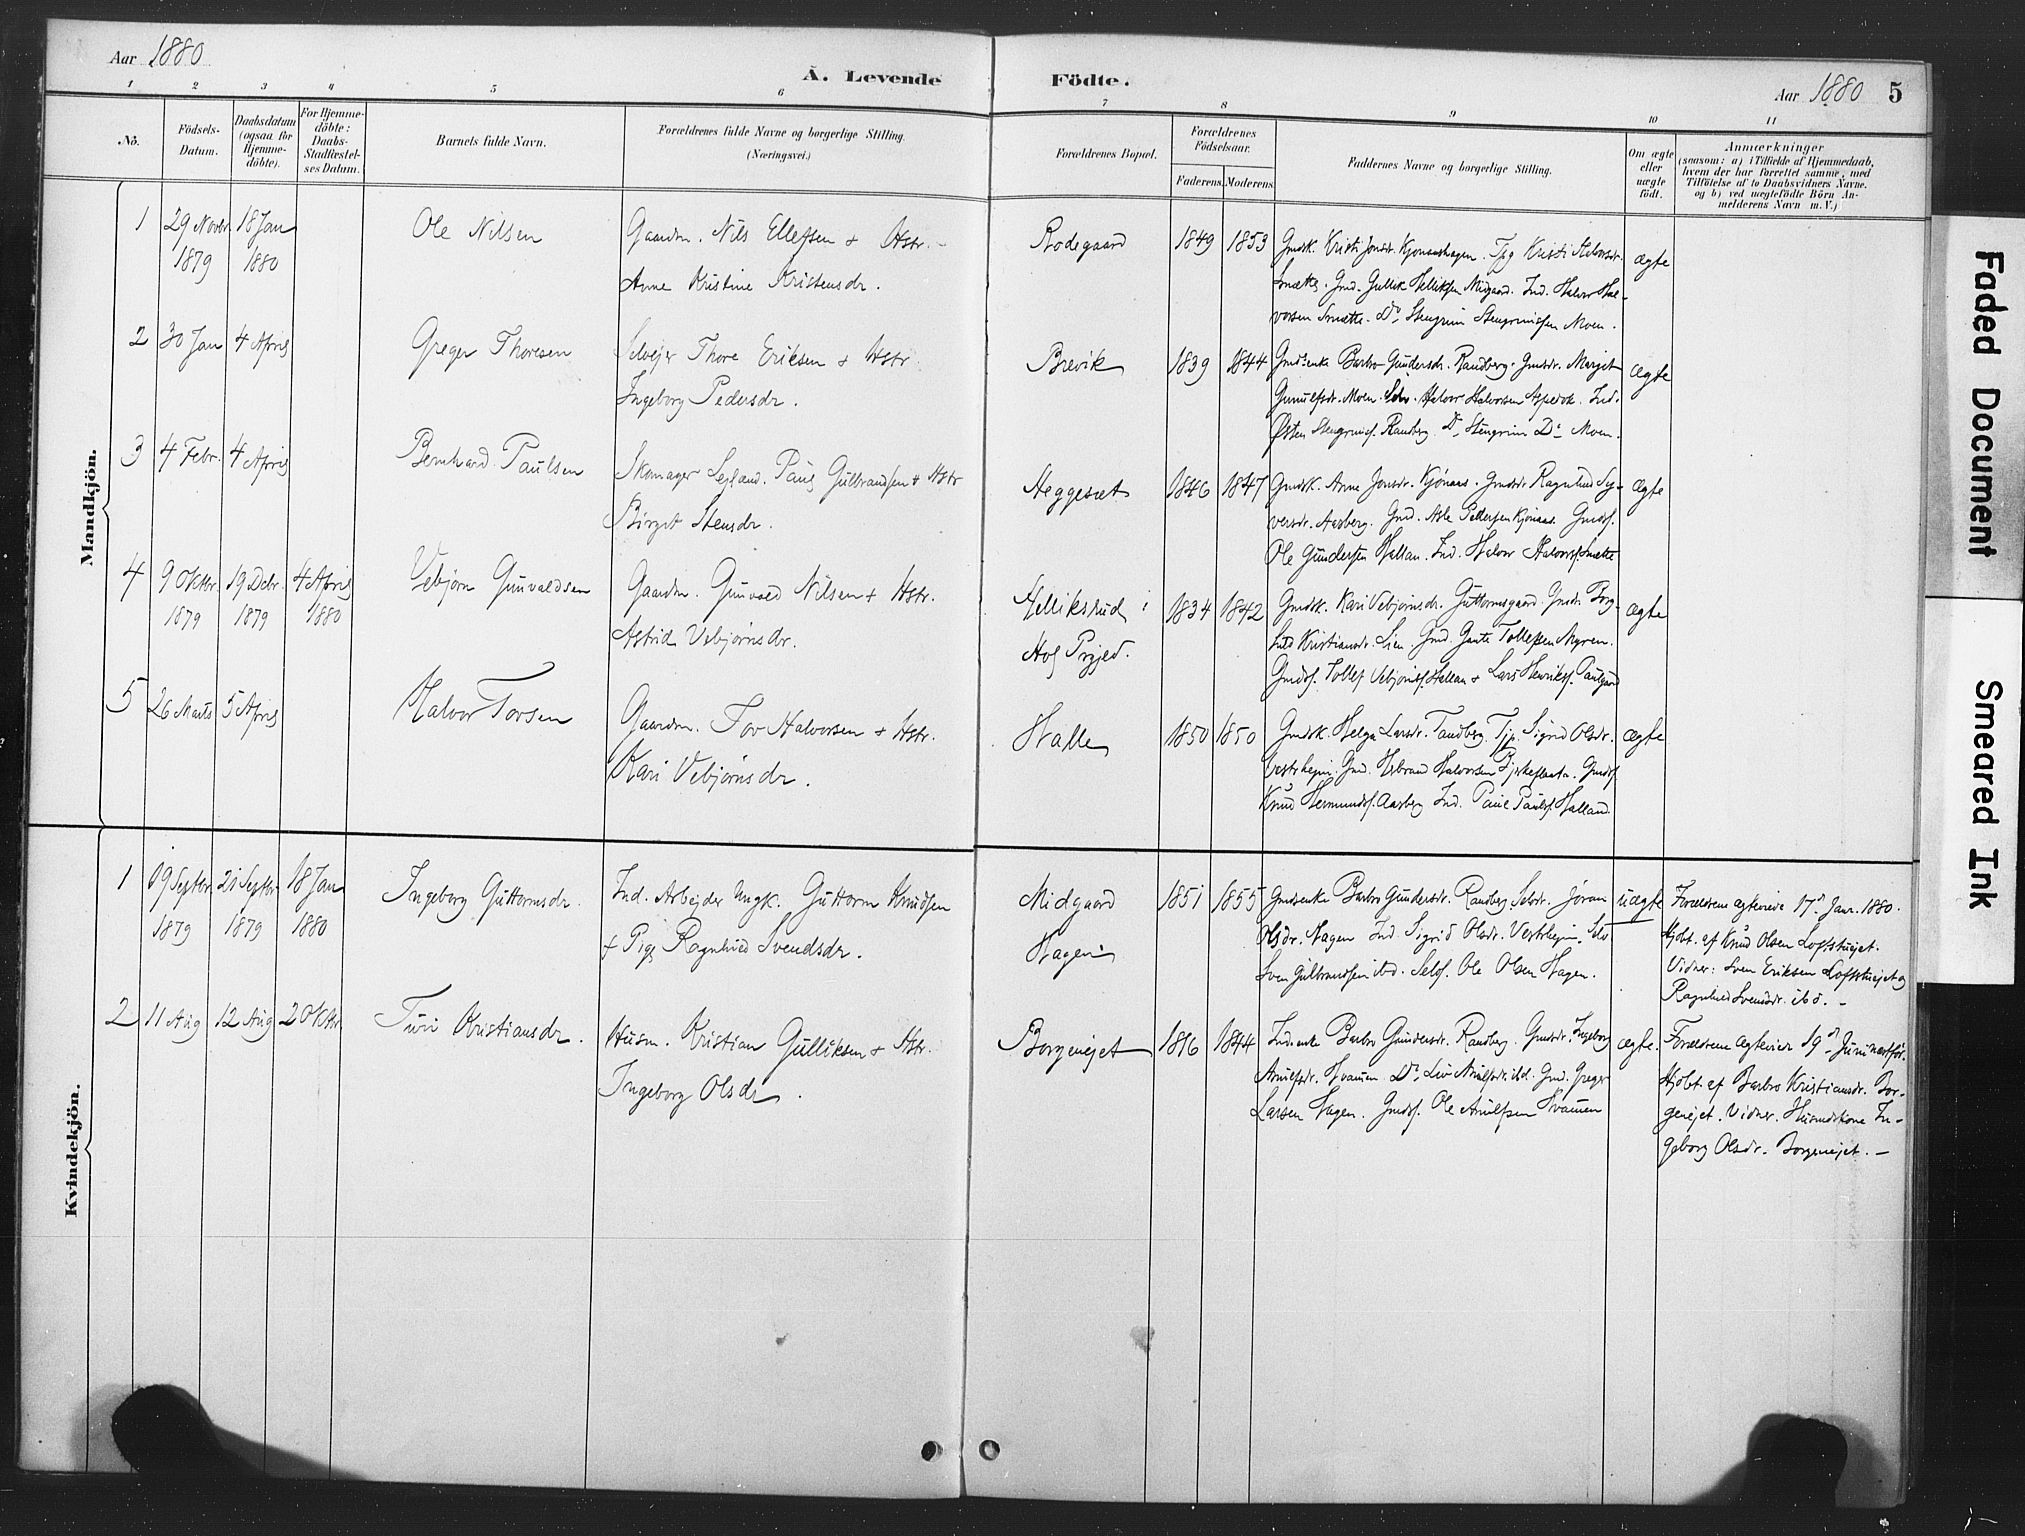 Aar 1880
A. Levende
Födte.
Aar 1880 5
1 2 3 4 5 6 7 8 9 10 11
No.
Födsels-
Datum.
Daabsdatum
(ogsaa for
Hjemme-
döbte).
For Hjemme-
döbte:
Daabs-
Stadfæstel-
ses Datum.
Barnets fulde Navn.
Forældrenes fulde Navne og borgerlige Stilling.
(Næringsvei.)
Forældrenes Bopæl.
Forældrenes
Födselsaar.
Faderens. Moderens.
Faddernes Navne og borgerlige Stilling.
Om ægte
eller
uægte
født.
Anmærkninger
(saasom: a) i Tilfælde af Hjemmedaab,
hvem der har forrettet samme, med
Tilføielse af to Daabsvidners Navne.
og b) ved uægtefødte Börn An-
melderens Navn m. V.)
Mandkjön.
1 29 Novbr 18 Jan Ole Nilsen Gaardm. Nils Ellefsen + Hstr. Rodegaard 1849 1853 Gmdsk. Kristi Jonsdr. Kjønaashagen. Kristi Halvorsdr. ægte
1879 1880 Anne Kristine Kristensdr. Smætte. Gmd. Gullik Helliksen Midgaard. Ind. Halvor Hal-
vorsen Smætte. Do. Stengrim Stengrimssen Moen.
2 30 Jan 4 April Greger Thoresen Selvejer Thore Eriksen + Hstr Brevik 1839 1844 Gmdsenke Barbro Gundersdr. Randberg. Gmdsdr. Margit ægte
Ingeborg Pedersdr. Gunulfsdr. Moen. Halvor Halvorsen. Ind.
Østen Stengrimss. Randberg. Do. Stengrim Do. Moen.
3 4 Febr. 4 April Bernhard Paulsen Skomager Paul Gulbrandsen + Hstr Heggesæt 1846 1847 Gmdsk. Anne Jonsdr. Kjønaas. Gmdsdr Ragnhild Sy- ægte
Birget Stensdr. versdr. Aasberg. Gmd. Asle Pedersen Kjønaas. Gmdss.
Ole Gundersen Hallan. Ind. Halvor Halvorss. Smætte
4 9 Oktbr. 19 Debr. 4 April Vebjørn Gunvaldsen Gaardm. Gunvald Nilsen + Hstr. Helliksrud i 1834 1842 Gmdsk. Kari Vebjørnsdr. Guttormsgaard. Gmdsdr. Torg- ægte
1879 1879 1880 Astrid Vebjørnsdr. Hol Prgjeld. Kristiansdr. Lien. Gmd. Tollefsen Myren.
Gmdss. Tollef Vebjørnss. Hallan + Lars Henrikss. Paulgaard
5 26 Marts 5 April Halvor Torsen Gaardm. Tor Halvorsen + Hstr. Halle 1850 1850 Gmdsk. Helga Larsdr. Tandberg. Tjp. Sigrid Olsdr. ægte
Kari Vebjørnsdr. Vestrhejm. Gmd. Halvorsen Bjerkeflaata. Gmdss
Knud Hermundss. Aasberg Ind. Paul Paulss. Halland.
Kvindekjön.
1 19 Septbr 21 Septbr 18 Jan Ingeborg Guttormsdr. Ind. Arbejder Ungk. Guttorm Knudsen Midgaard 1851 1855 Gmdsenke Barbro Gundersdr. Randberg. Selvdr. Jøran uægte Forældrene ægteviede 17d Janr. 1880.
1879 1879 1880 + Pige Ragnhild Svendsdr. Hagen Olsdr. Hagen Ind. Sigrid Olsdr. Vestrhejm. Hjdbt. af Knud Olsen Loftstuejet.
Sven Gulbrandsen ibd. Selvs. Ole Olsen Hagen. Vidner: Sven Eriksen Loftstuejet og
Ragnhild Svendsdr. ibd.
2 11 Aug 12 Aug 2 Oktbr Turi Kristiansdr. Husm. Kristian Gulliksen + Hstr. Borgenejet 1844 Ind.enke Barbro Gundersdr. Randberg. Gmdsdr. Ingeborg ægte. Forældrene ægteviet 19d Juni næstfør.
Ingeborg Olsdr. Arnulfsdr. Do. Liv Arnulfsdr. ibd. Gmd. Greger Hjdbt. af Barbro Kristiansdr. Bor-
Larsen Hagen. Gmdss. Ole Arnulfsen genejet. Vidner. Husmdskone In-
geborg Olsdr. Borgenejet.
Faded Document
Smeared Ink